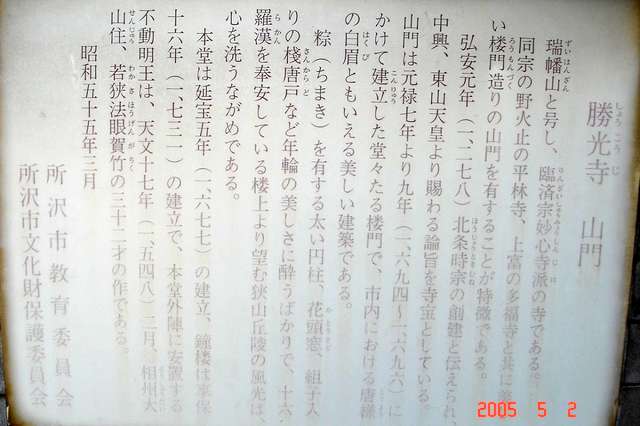 勝光寺 山門
瑞幡山と号し、臨済宗妙心寺派の寺である。
同宗の野火止の平林寺、上富の多福寺と共に
い楼門造りの山門を有することが特徴である。
弘安元年（一、二七八）北条時宗の創建と伝えられ、
中興、東山天皇より賜わる論旨を寺宝としている。
山門は元禄七年より九年（一、六九四〜一、六九六）に
かけて建立した堂々たる楼門で、市内における唐様
の白眉ともいえる美しい建築である。
粽（ちまき）を有する太い円柱、花頭窓、組子入
りの棧唐戸など年輪の美しさに酔うばかりで、十六
羅漢を奉安している楼上より望む狭山丘陵の風光は、
心を洗うながめである。
本堂は延宝五年（一、六七七）の建立、鐘楼は享保
十六年（一、七三一）の建立で、本堂外陣に安置する
不動明王は、天文十七年（一、五四八）二月、相州大
山住、若狭法眼賀竹の三十二才の作である。
昭和五十五年三月
所沢市教育委員会
所沢市文化財保護委員会
2005 5 2